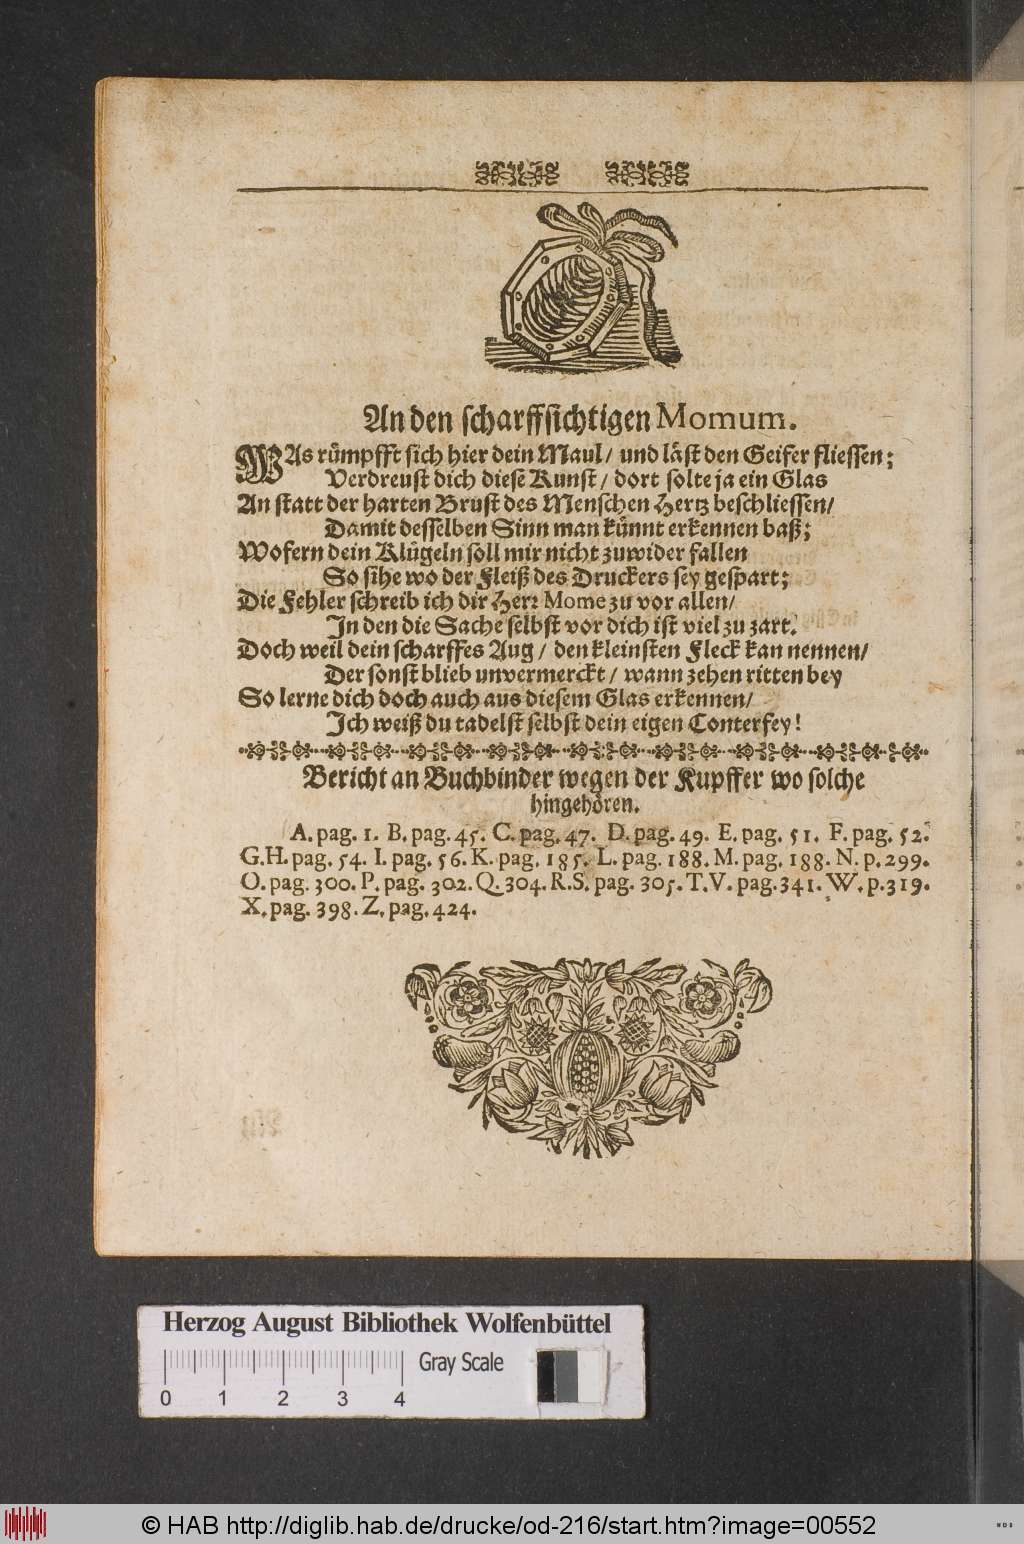 An den scharffsichtigen Momum.
WAs rümpfft sich hier dein Maul / und läst den Geifer fliessen;
Verdreust dich diese Kunst / dort solte ja ein Glas
An statt der harten Brust des Menschen Hertz beschliessen /
Damit desselben Sinn man künnt erkennen baß;
Wofern dein Klügeln soll mir nicht zuwider fallen
So sihe wo der Fleiß des Druckers sey gespart;
Die Fehler schreib ich dir Herr Mome zu vor allen /
In den die Sache selbst vor dich ist viel zu zart.
Doch weil dein scharffes Aug / den kleinsten Fleck kan nennen /
Der sonst blieb unvermerckt / wann zehen ritten bey
So lerne dich doch auch aus diesem Glas erkennen /
Ich weiß du tadelst selbst dein eigen Conterfey!
Bericht an Buchbinder wegen der Kupffer wo solche
hingehören.
A. pag. 1. B. pag. 45. C. pag. 47. D. pag. 49. E. pag. 51. F. pag. 52.
G.H. pag. 54. I. pag. 56. K. pag. 185. L. pag. 188. M. pag. 188. N. p. 299.
O. pag. 300. P. pag. 302. Q. 304. R.S. pag. 305. T.V. pag. 341. W. p. 319.
X. pag. 398. Z. pag. 424.
Herzog August Bibliothek Wolfenbüttel
Gray Scale
0 1 2 3 4
© HAB http://diglib.hab.de/drucke/od-216/start.htm?image=00552